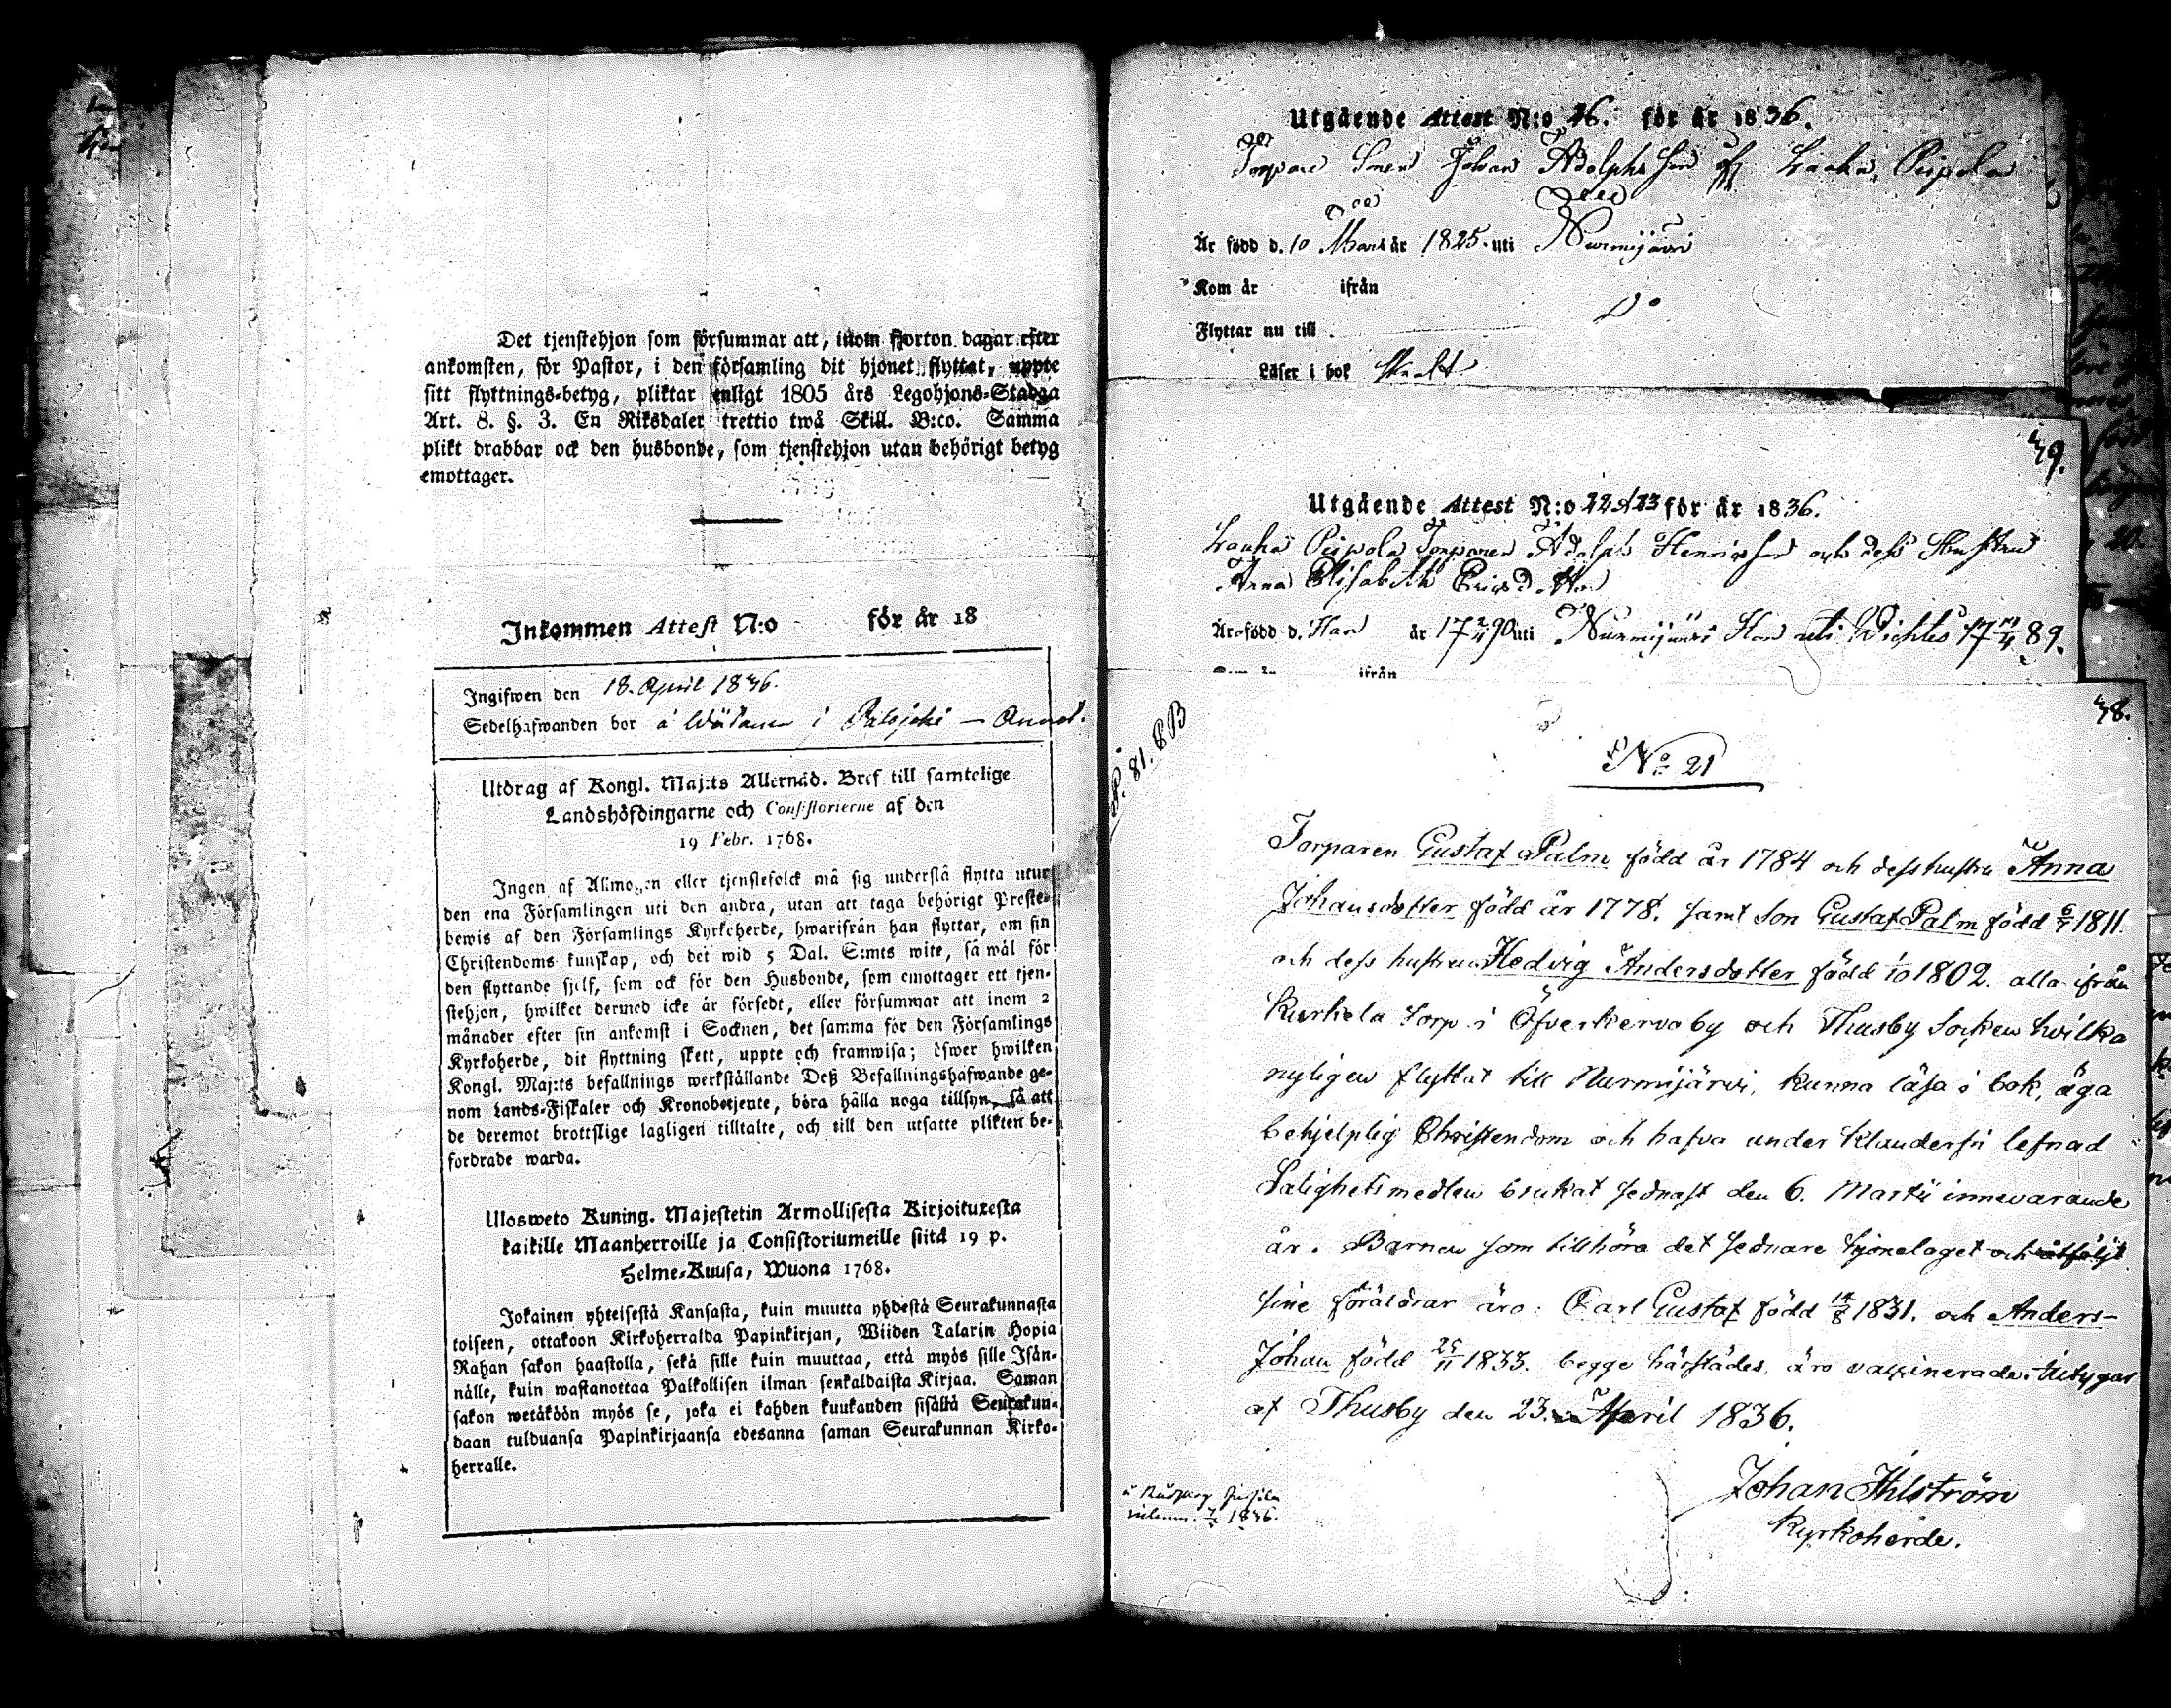 Det tjenstehjon som försummar att, inom fjorton dagar efter
ankomsten, för Pastor, i den församling dit hjonet flyttat, uppte
sitt flyttnings-betyg, pliktar enligt 1805 års Legohjons-Stadga
Art. 8. §. 3. En Riksdaler trettio twå Skill. B:co. Samma
plikt drabbar ock den husbonde, som tjenstehjon utan behörigt betyg
emottager.
Inkommen Attest N:o för år 18
Ingifwen den 18. April 1836.
Sedelhafwanden bor å i
Utdrag af Kongl. Maj:ts Allernåd. Bref till samtelige
Landshöfdingarne och Consistorierne af den
19 Febr. 1768.
Ingen af Allmogen eller tjenstefolck må sig understå flytta utur
den ena Församlingen uti den andra, utan att taga behörigt Preste-
bewis af den Församlings Kyrkoherde, hwarifrån han flyttar, om sin
Christendoms kunskap, och det wid 5 Dal. S:mts wite, så wäl för
den flyttande sjelf, som ock för den Husbonde, som emottager ett tjen-
stehjon, hwilket dermed icke är försedt, eller försummar att inom 2
månader efter sin ankomst i Socknen, det samma för den Församlings
Kyrkoherde, dit flyttning skett, uppte och framwisa; öfwer hwilken
Kongl. Maj:ts befallnings werkställande Deß Befallningshafwande ge-
nom Lands-Fiskaler och Kronobetjente, böra hålla noga tillsyn, så att
de deremot brottslige lagligen tilltalte, och till den utsatte plikten be-
fordrade warda.
Ulosweto Kuning. Majestetin Armollisesta Kirjoituxesta
kaikille Maanherroille ja Consistoriumeille siitä 19 p.
Helme-Kuusa, Wuona 1768.
Jokainen yhteisestä Kansasta, kuin muutta yhdestä Seurakunnasta
toiseen, ottakoon Kirkoherralda Papinkirjan, Wiiden Talarin Hopia
Rahan sakon haastolla, sekä sille kuin muuttaa, että myös sille Isän-
nälle, kuin wastanottaa Palkollisen ilman senkaldaista Kirjaa. Saman
sakon wetäköön myös se, joka ei kahden kuukauden sisällä Seurakun-
daan tulduansa Papinkirjaansa edesanna saman Seurakunnan Kirko-
herralle.
Utgående Attest N:o 26. för år 1836.
Torpare Sonen Johan Adolphsson
Är född d. 10 Mars år 1825. uti Nurmijärvi
Kom år ifrån
Flyttar nu till D:o
Läser i bok
49.
Utgående Attest N:o 22 & 23 för år 1836.
Torparen Adolph Henricsson och dess Hustru
Anna Elisabeth Ericsdotter
Är född d. Han år 17 90 uti Nurmijärvi Hon uti Wichtis 17 89.
ifrån
48.
P. 81. BB
No 21
Torparen Gustaf Palm född år 1784 och dess hustru Anna
Johansdotter född år 1778. samt Son Gustaf Palm född 6/7 1811.
och dess hustru Hedvig Andersdotter född 1/10 1802. alla ifrån
Kurkela torp i Öfverkervo by och Thusby Socken hvilka
nyligen flyttat till Nurmijärvi, kunna läsa i bok, äga
behjelplig Christendom och hafva under klanderfri lefnad
Salighetsmedlen brukat sednast den 6. Martii innevarande
år. Barnen som tillhöra det sednare hjonelaget och åtföljt
sine föräldrar äro: Carl Gustaf född 14/8 1831. och Anders
Johan född 25/11 1833. begge härstädes, äro vaccinerade. Intygar
af Thusby den 23. April 1836.
Johan Ihlström
Kyrkoherde.
1836.